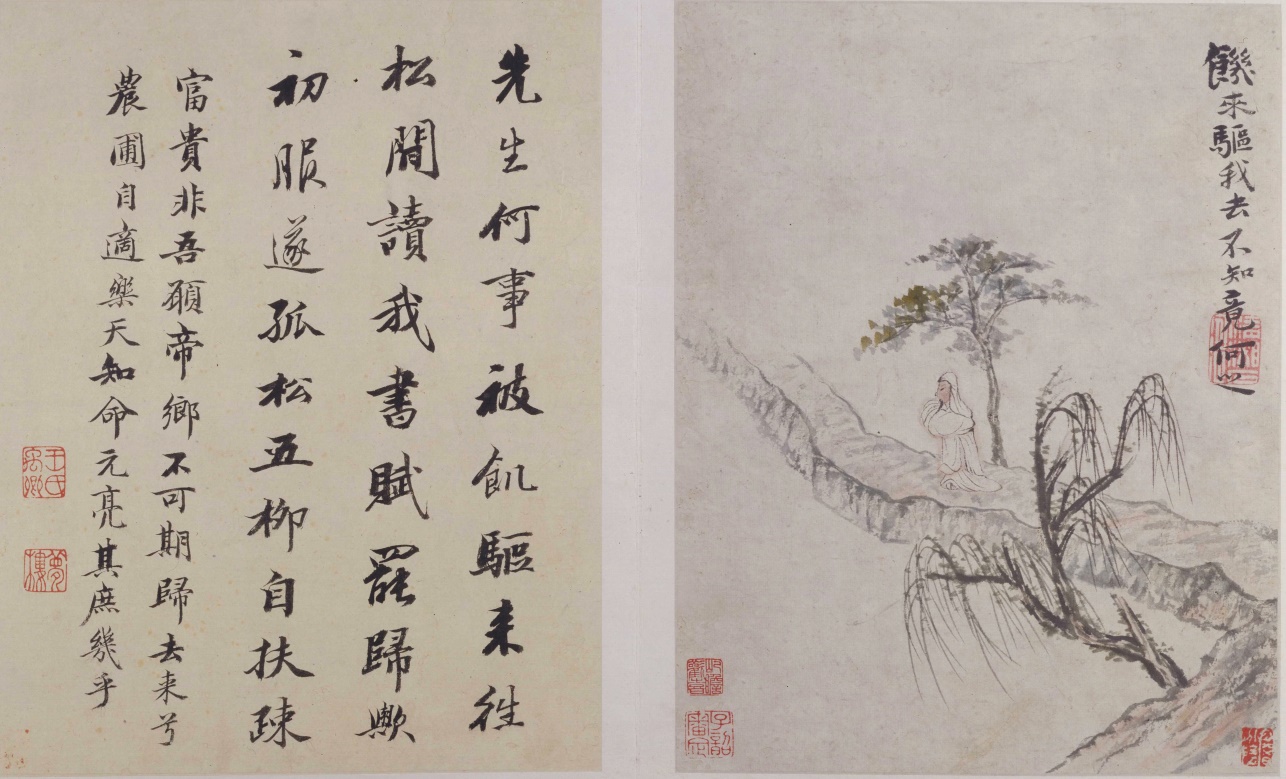 饑來驅我去不知竟何之
先生何事被飢驅来往
松間讀我書賦罷歸歟
初服遂孤松五柳自扶疎
富貴非吾願帝鄉不可期歸去来兮
農圃自適樂天知命元亮其庶幾乎
王氏禹卿
夢樓